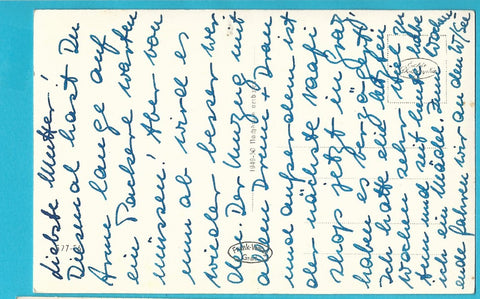 Liebste Mutter!
Diesmal hast Du
Arme lange auf
ein Packerl warten
müssen! Aber von
nun ab wird es
wieder besser wer-
den. Der Umzug mit
allem Drum + Dran
und außerdem ist
der nächste
shop jetzt in Graz
haben es verzögert!
Ich hatte die letzten
Wochen sehr viel zu
tun und seit heute habe
ich ein Mädel. Zum Wochen
ende fahren wir an den W/See